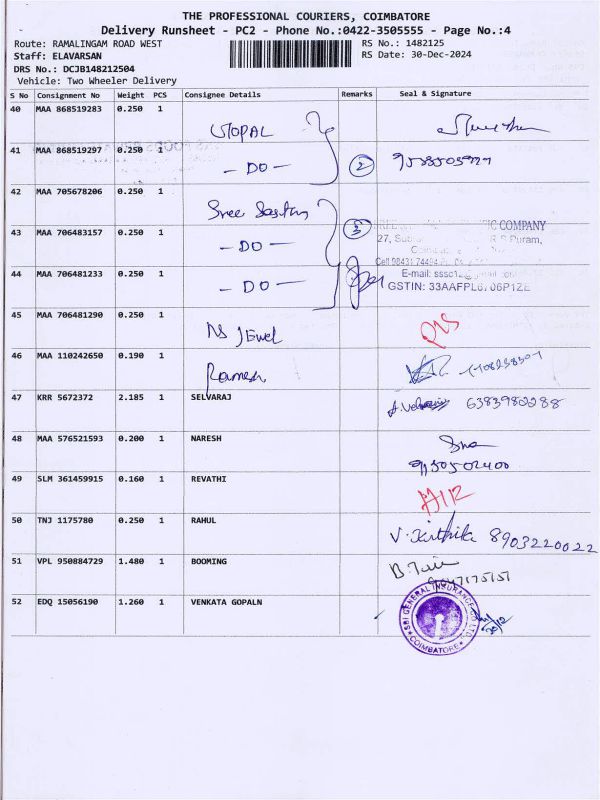 THE PROFESSIONAL COURIERS, COIMBATORE
Delivery Runsheet - PC2 - Phone No.:0422-3505555 - Page No.:4
Route: RAMALINGAM ROAD WEST RS No.: 1482125
Staff: ELAVARSAN RS Date: 30-Dec-2024
DRS No.: DCJB148212504
Vehicle: Two Wheeler Delivery
S No Consignment No Weight PCS Consignee Details Remarks Seal & Signature
40 MAA 868519283 0.250 1 GOPAL
41 MAA 868519297 0.250 1 - DO - 2
42 MAA 705678206 0.250 1 Sree
43 MAA 706483157 0.250 1 - DO - 3 COMPANY
27, R.S Puram,
44 MAA 706481233 0.250 1 - DO -
GSTIN:
45 MAA 706481290 0.250 1 NS JEWEL
46 MAA 110242650 0.190 1 Ramesh
47 KRR 5672372 2.185 1 SELVARAJ 6383982288
48 MAA 576521593 0.200 1 NARESH
49 SLM 361459915 0.160 1 REVATHI
50 TNJ 1175780 0.250 1 RAHUL V. Kirthika 8903220022
51 VPL 950884729 1.480 1 BOOMING
52 EDQ 15056190 1.260 1 VENKATA GOPALN
SBI GENERAL INSURANCE CO LTD.
COIMBATORE